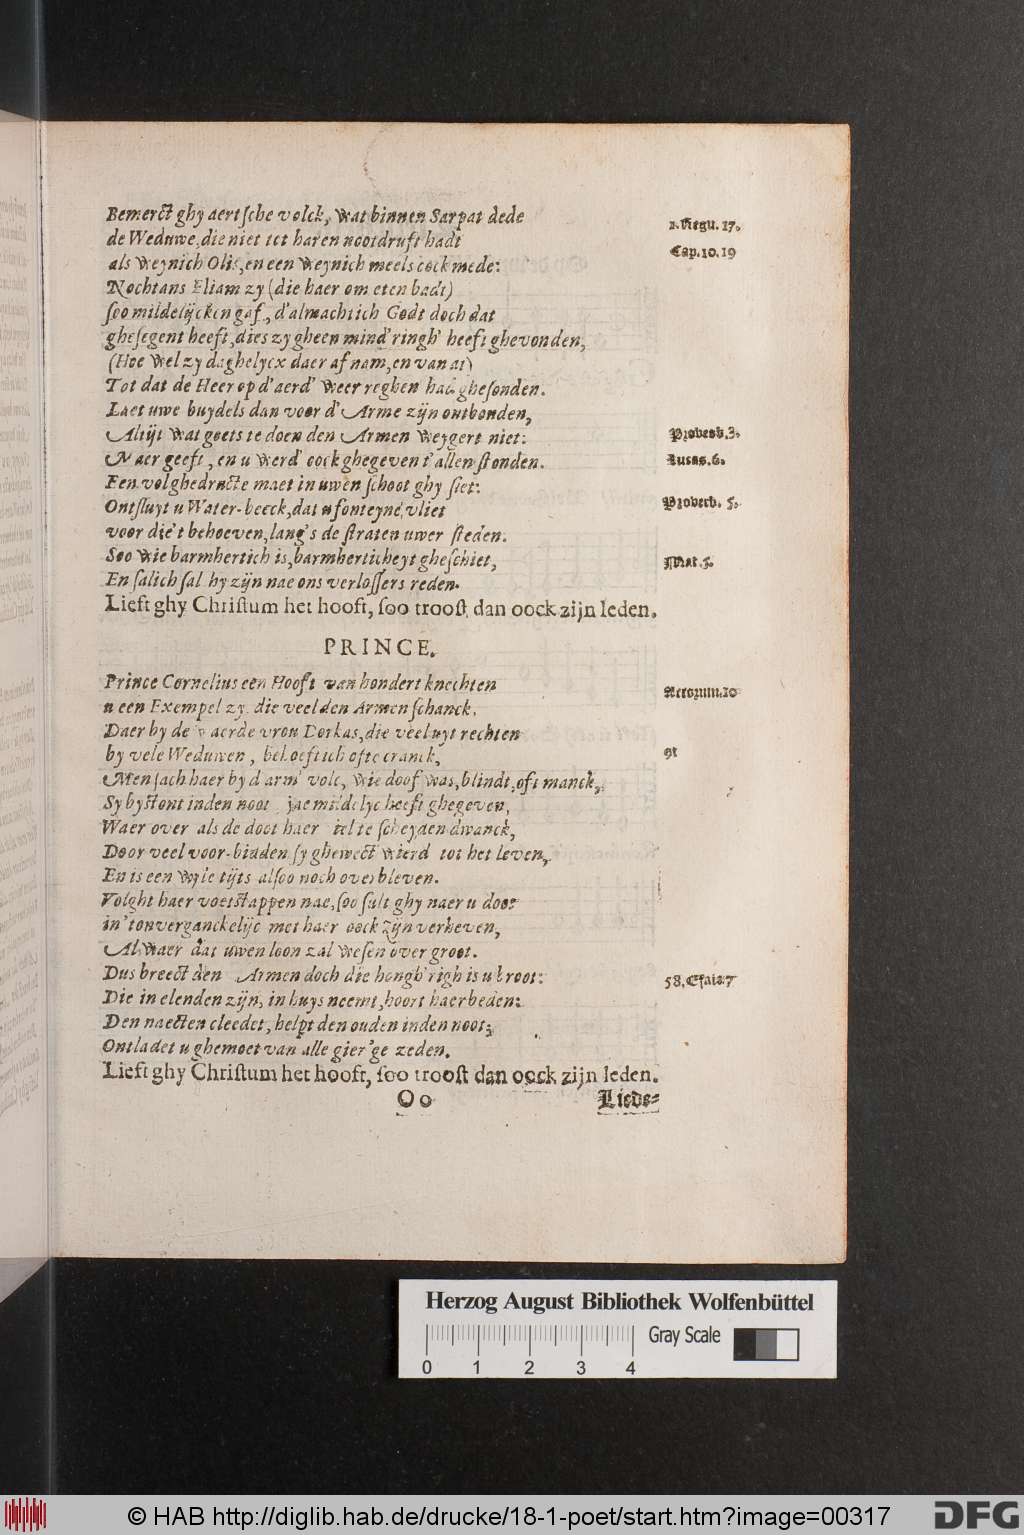 Bemerct ghy aertsche volck, wat binnen Sarpat dede
1. Regū. 17.
de Weduwe, die niet tot haren nootdruft hadt
Cap. 10. 19
als weynich Olis, en een weynich meels oock mede:
Nochtans Eliam zy (die haer om eten badt)
soo mildelijcken gaf, d'almachtich Godt doch dat
ghesegent heeft, dies zy gheen mind'ringh' heeft ghevonden,
(Hoe wel zy daghelycx daer af nam, en van at)
Tot dat de Heer op d'aerd' weer reghen had ghesonden.
Laet uwe buydels dan voor d'Arme zijn ontbonden,
Altijt wat goets te doen den Armen weygert niet:
Proverb. 3.
Maer geeft, en u werd' oock ghegeven t'allen stonden.
Lucas. 6.
Een vol ghedructe maet in uwen schoot ghy siet:
Ontsluyt u Water-beeck, dat u fonteyne vliet
Proverb. 5.
voor die't behoeven, lang's de straten uwer steden.
Soo wie barmhertich is, barmherticheyt gheschiet,
Mat. 5.
En salich sal hy zijn nae ons verlossers reden.
Lieft ghy Christum het hooft, soo troost dan oock zijn leden.
PRINCE.
Prince Cornelius een Hooft van hondert knechten
Actorum. 10
u een Exempel zy, die veel den Armen schanck.
Daer by de waerde vrou Dorkas, die veel uyt rechten
by vele Weduwen, behoeftich ofte cranck,
91
Men sach haer by d'arm' volc, wie doof was, blindt, oft manck,
Sy bystont inden noot jae mildelyc heeft ghegeven,
Waer over als de doot haer siel te scheyden dwanck,
Door veel voor-bidden sy ghewect wierd tot het leven,
En is een wyle tijts alsoo noch overbleven.
Volght haer voetstappen nae, soo sult ghy naer u doot
in'tonverganckelijc met haer oock zijn verheven,
Alwaer dat uwen loon zal wesen over groot.
Dus breect den Armen doch die hongh'righ is u broot:
58. Esaia 7
Die in elenden zijn, in huys neemt, hoort haer beden:
Den naecten cleedet, helpt den ouden inden noot;
Ontladet u ghemoet van alle gier'ge zeden.
Lieft ghy Christum het hooft, soo troost dan oock zijn leden.
Oo
Liede-
Herzog August Bibliothek Wolfenbüttel
Gray Scale
0 1 2 3 4
© HAB http://diglib.hab.de/drucke/18-1-poet/start.htm?image=00317
DFG